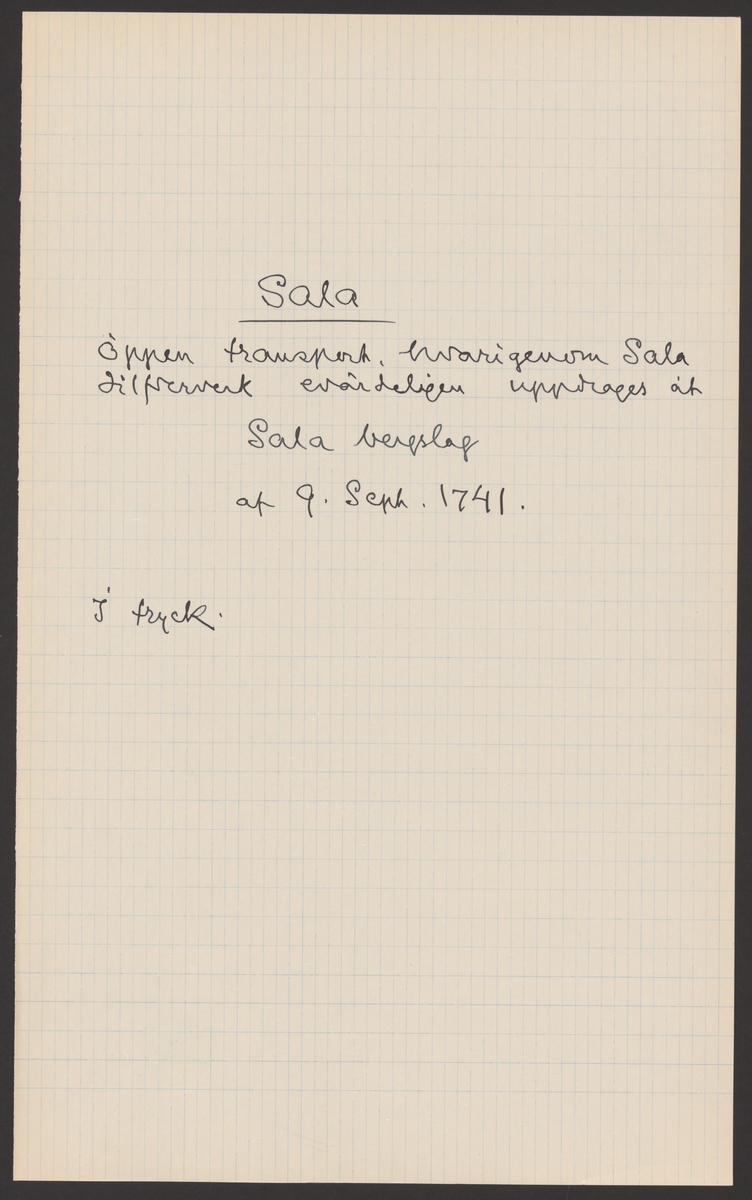 Sala
Öppen transport, hvarigenom Sala
Silfververk evärdeligen uppdrages åt
Sala bergslag
af 9. Sept. 1741.
I tryck.